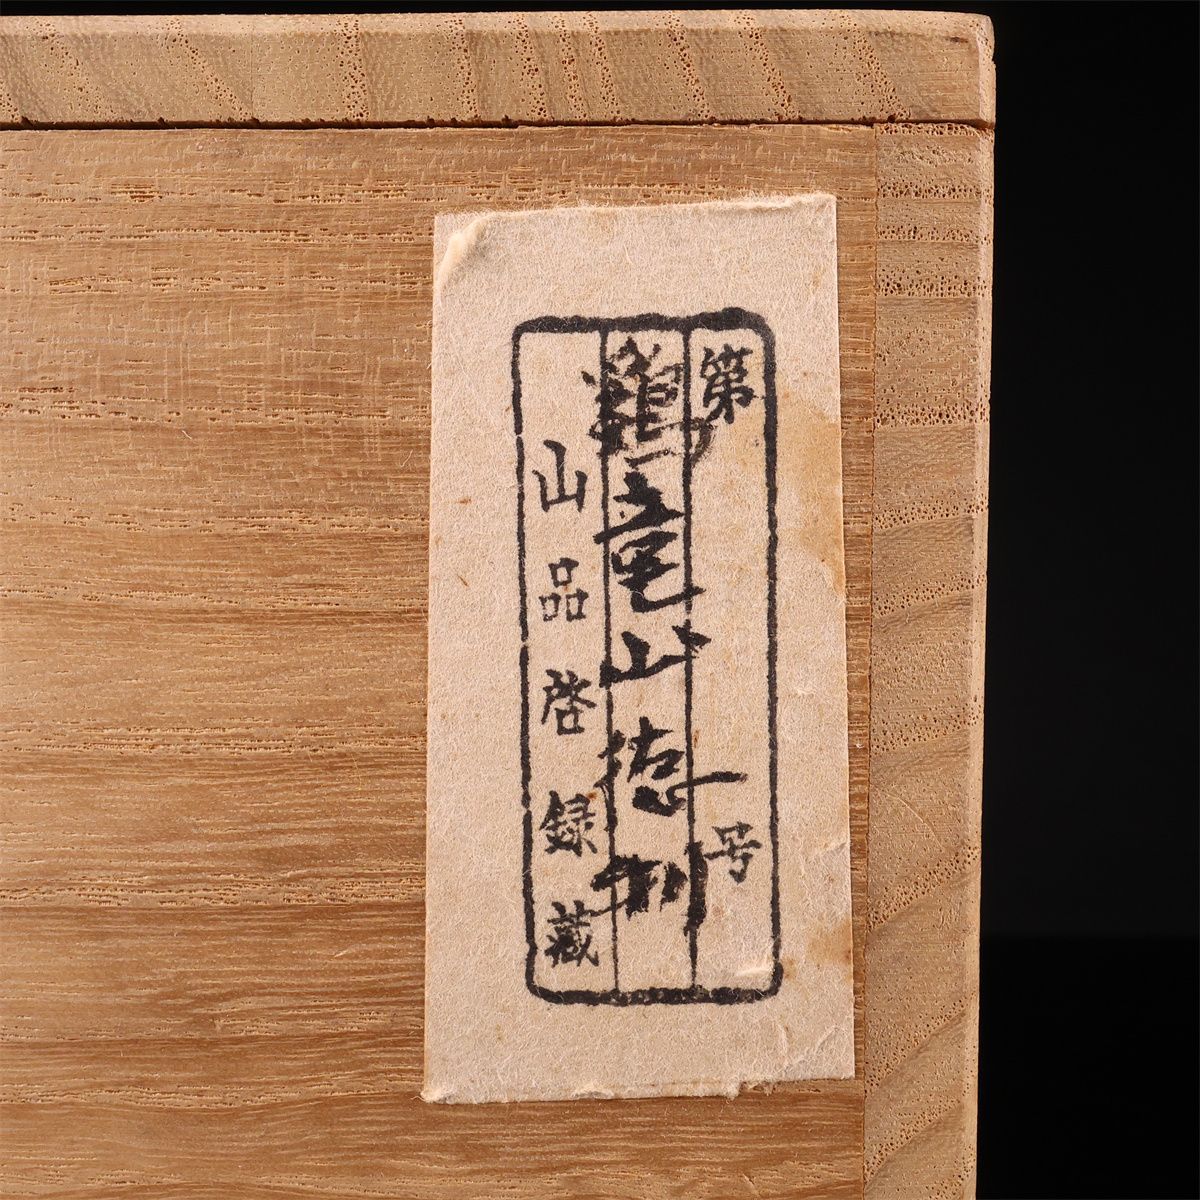 第 号
鶏竜山徳利
山品啓録藏